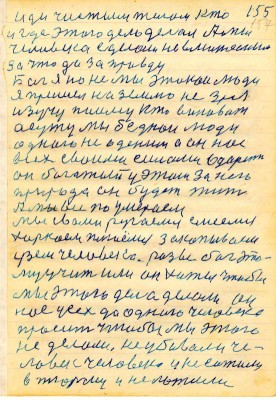 155
иди чистым телом кто
и где этого дел делал А мы
человека сделали
за что да за правду
Бог я но не мы этокой люди
Я пришел на землю не зря
изучу пойму кто виноват
а тут мы бедной люди
одного не оденим а он нас
всех своими силами одарит
он богатый у этом За него
природа он будет жить
А мы все поумираем
мы с вами ругаемся смеемся
харкаем плюем закапывали
узем человека. разве бог это
мучит или он хотел чтобы
мы этого дела делали он
нас усех до одного человека
просит чтобы мы этого
не делали, не убивали че-
ловек человека и не сажали
в тюрьму и не ложили